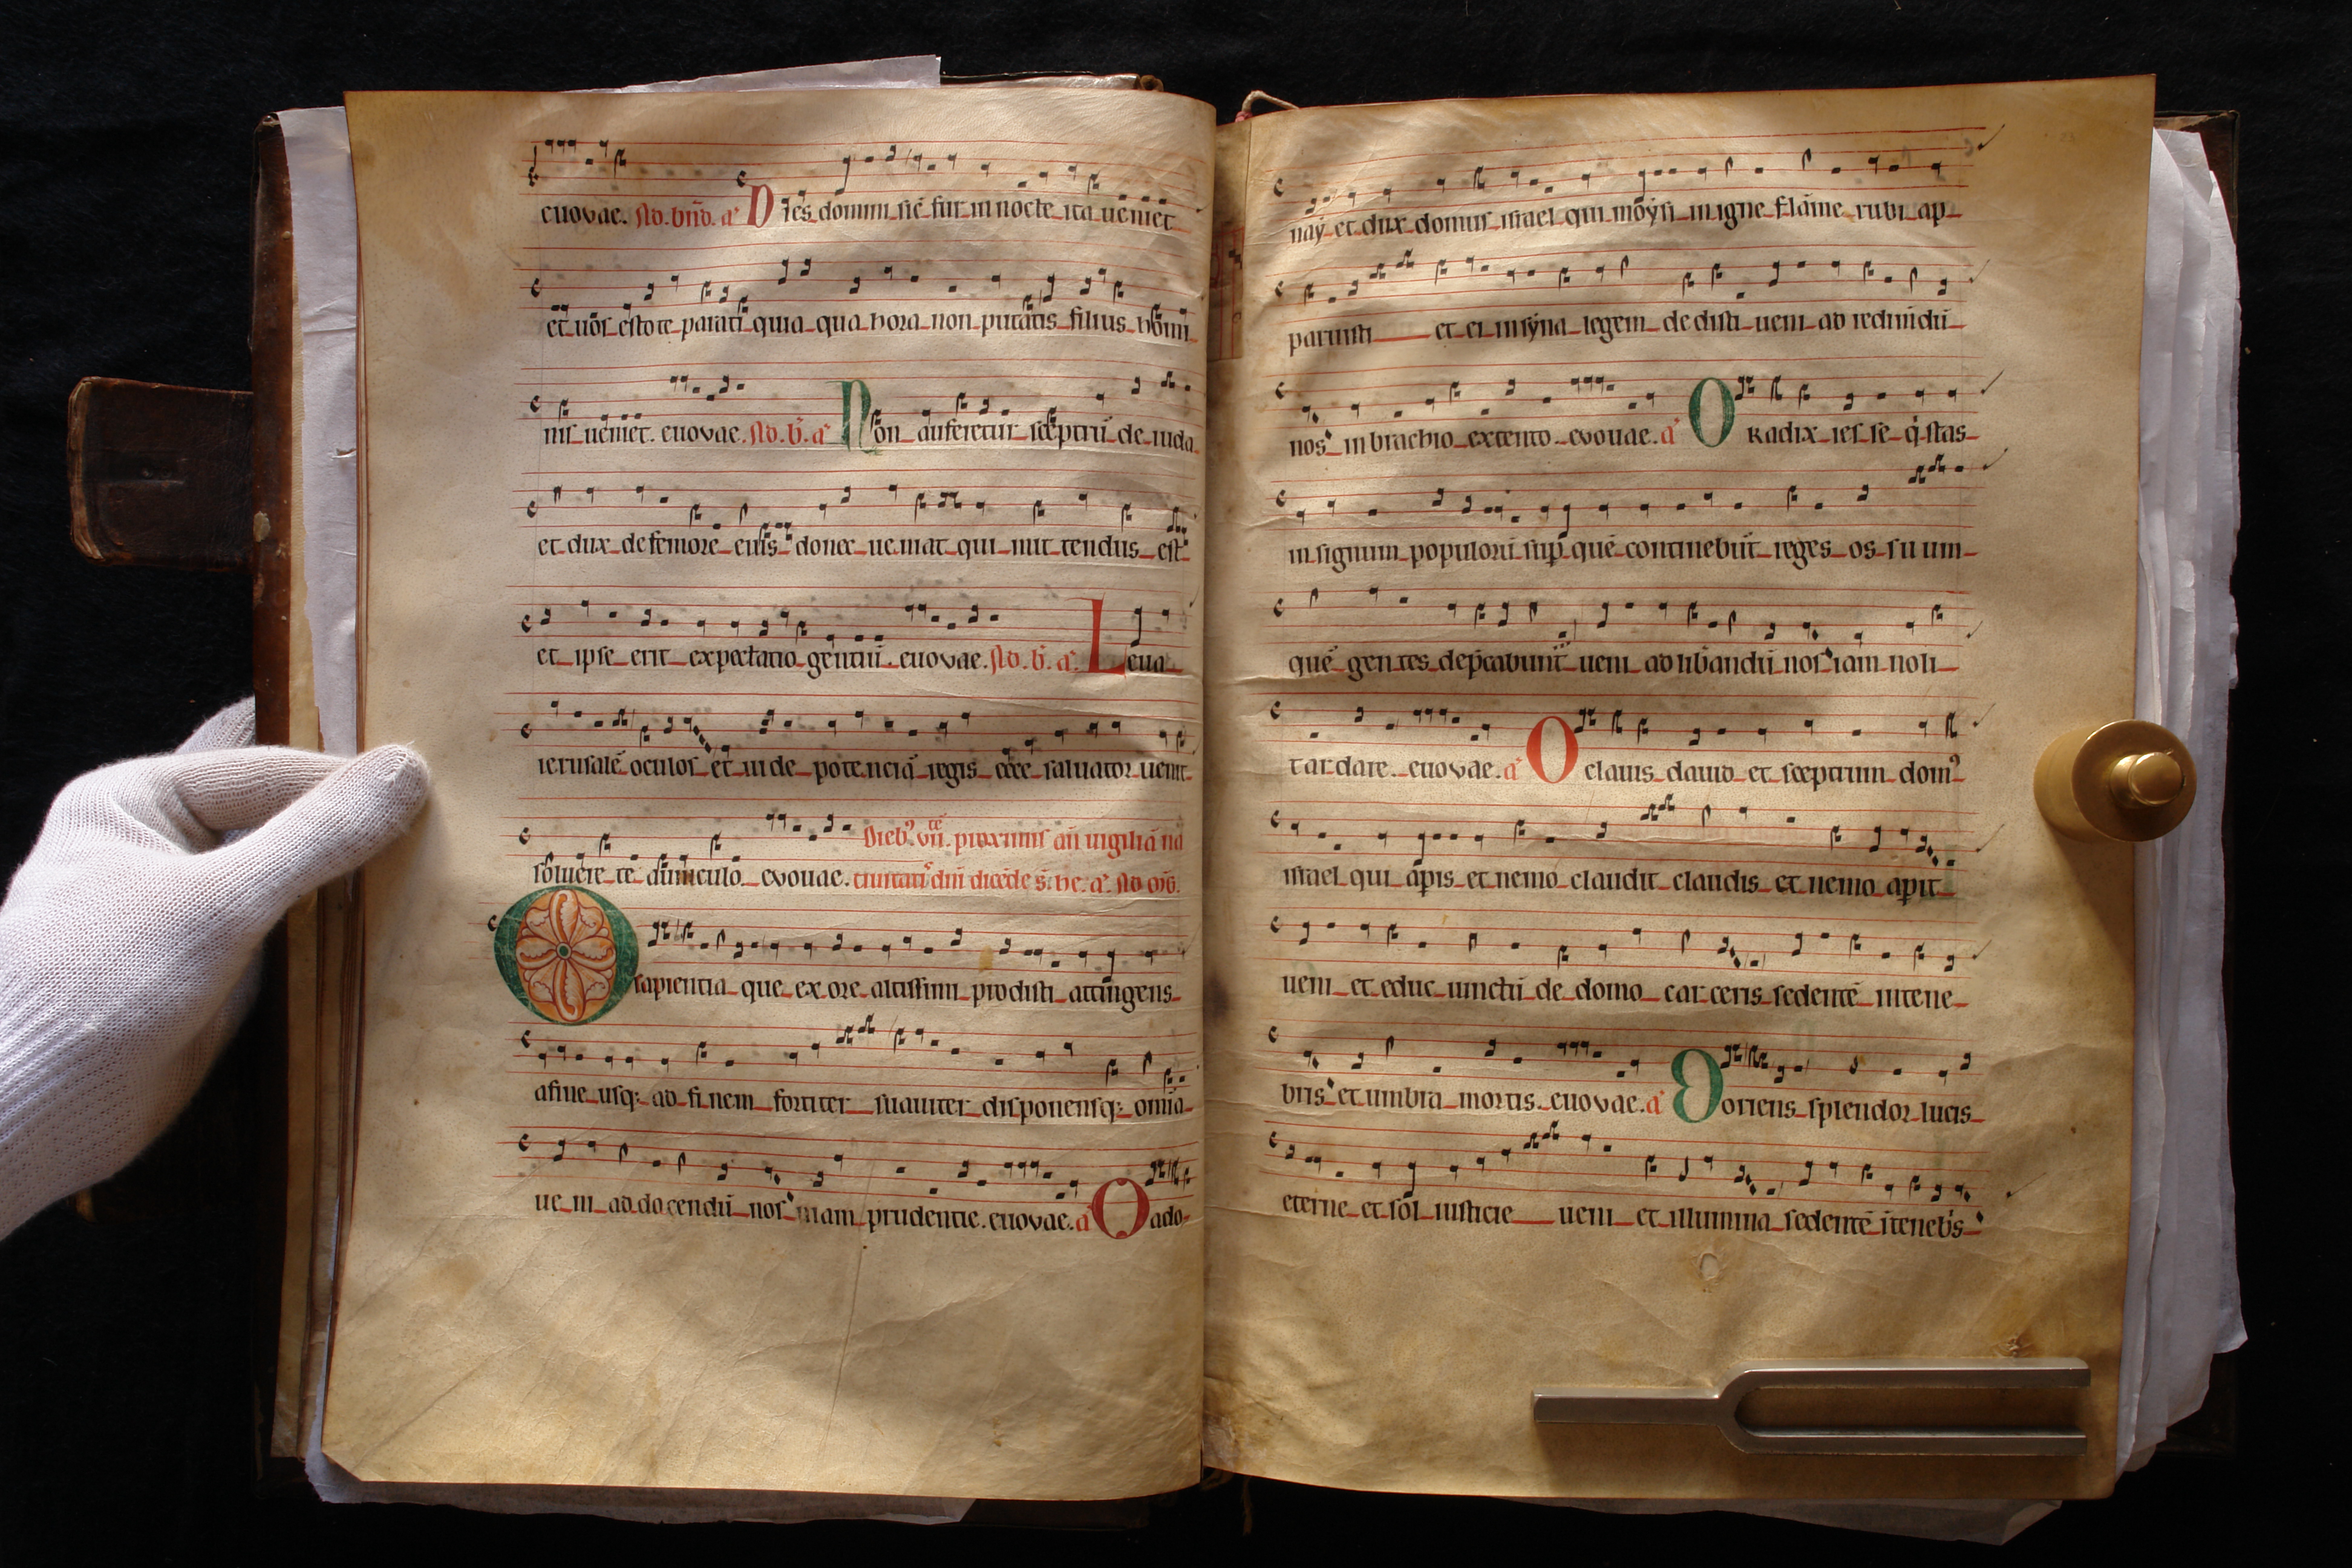 euovae. ... a͛ Dies domini sic̄ fur in nocte ita ueniet
et uos estote parati quia qua hora non putatis filius homi
nis ueniet. euovae. ... a͛ Non auferetur sceptrū de iuda
et dux de femore eius donec ueniat qui mittendus est
et ipse erit expectatio gentiū. euovae. ... a͛ Leua
ierusalē oculos et uide potenciā regis ecce saluator uenit
Dieb᾽ vii. proximis an̄ uigiliā na
soluere te a uinculo euouae. tiuitatis dn̄i ... a͛
O sapientia que ex ore altissimi prodisti attingens
a fine usq; ad finem fortiter suauiter disponensq; omnia
ueni ad docendū nos uiam prudentie. euovae. a͛ O ado
nay et dux domus israel qui moysi in igne flāme rubi ap
paruisti et ei in syna legem dedisti ueni ad redimēdū
nos in brachio extento. evouae. a͛ O Radix iesse q̇ stas
in signum populorū sup quē continebūt reges os suum
quē gentes dep̄cabunt᷑ ueni ad lib̄andū nos iam noli
tardare. euovae. a͛ O clauis dauid et sceptrum dom᾽
israel qui apis et nemo claudit claudis et nemo apit
ueni et educ uinctū de domo carceris sedentē in tene
bris et umbra mortis. euovae. a͛ O oriens splendor lucis
eterne et sol iusticie ueni et illumina sedentē ī tenebs